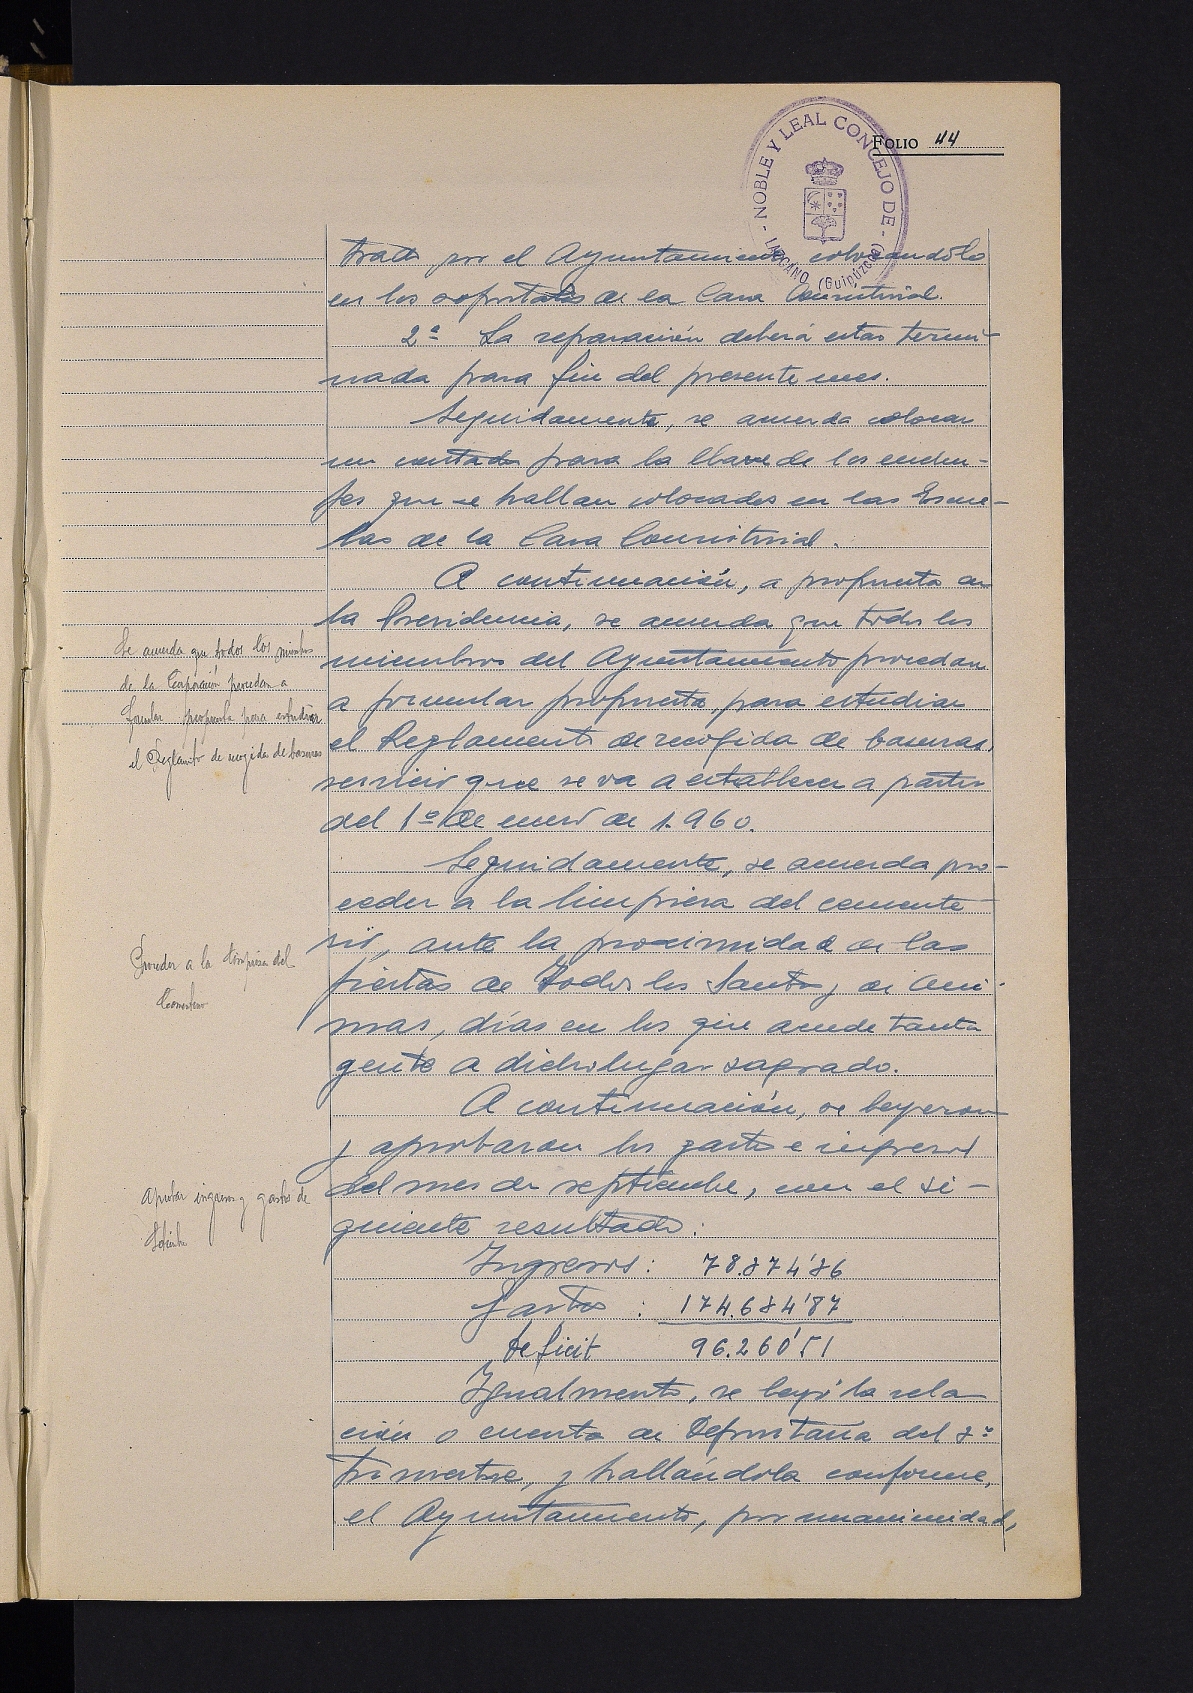 FOLIO 44
- NOBLE Y LEAL CONCEJO DE -
LAZCANO (Guipúzcoa)
trato por el Ayuntamiento colocandolo
en los soportales de la Casa Consistorial.
2ª La reparación deberá estar termi-
nada para fin del presente mes.
Seguidamente, se acuerda colocar
un contador para la llave de los enchu-
fes que se hallan colocados en las Escue-
las de la Casa Consistorial.
A continuación, a propuesta de
la Presidencia, se acuerda que todos los
miembros del Ayuntamiento procedan
a formular propuesta para estudiar
el Reglamento de recogida de basuras,
servicio que se va a establecer a partir
del 1º de enero de 1.960.
Se acuerda que todos los miembros
de la Corporación procedan a
formular propuesta para estudiar
el Reglamto de recogida de basuras
Seguidamente, se acuerda pro-
ceder a la limpieza del cemente-
rio, ante la proximidad de las
fiestas de Todos los Santos y de Ani-
mas, días en los que acude tanta
gente a dicho lugar sagrado.
Proceder a la limpieza del
Cementerio
A continuación, se leyeron
y aprobaron los gastos e ingresos
del mes de septiembre, con el si-
guiente resultado:
Aprobar ingresos y gastos de
Setiembre
Ingresos: 78.874'86
Gastos : 174.684'87
deficit 96.260'51
Igualmente, se leyó la rela
ción o cuenta de Depositaria del 3º
trimestre, y hallándola conforme,
el Ayuntamiento, por unanimidad,